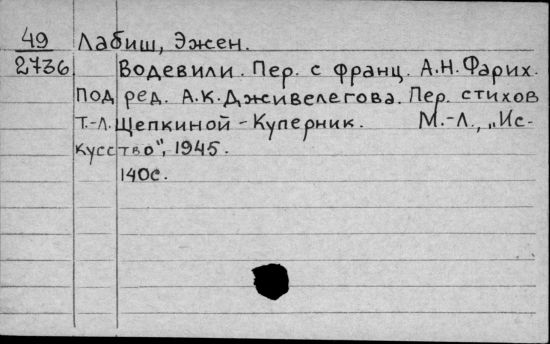 49 Лабиш, Эжен.
2736 Водевили. Пер. с франц. А.Н. Фарих.
Под ред. А.К. Дживелегова. Пер. стихов
Т.-Л. Щепкиной-Куперник. М.-Л., „Ис-
кусство", 1945.
140с.